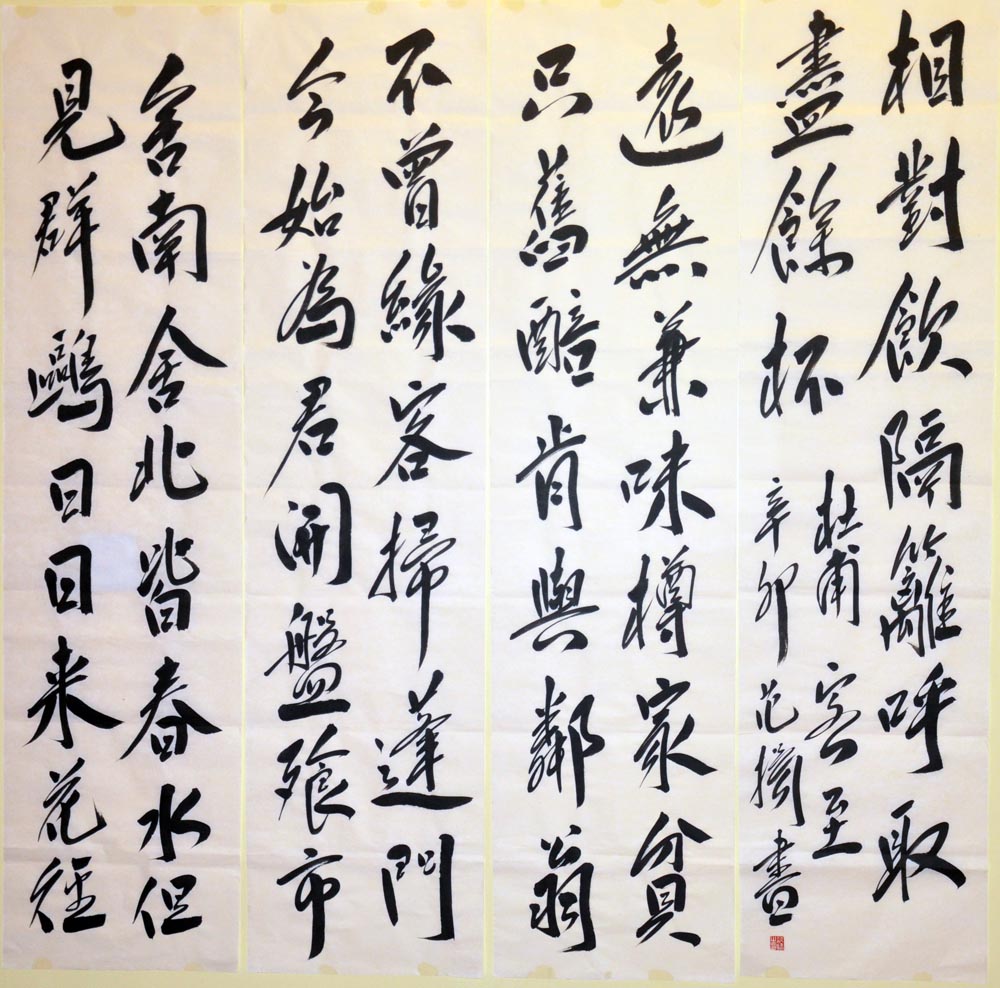 舍南舍北皆春水但
見群鷗日日来花徑
不曾緣客掃蓬門
今始為君開盤飱市
遠無兼味樽家貧
只舊醅肯與鄰翁
相對飲隔籬呼取
盡餘杯
杜甫 客至
辛卯 范 書